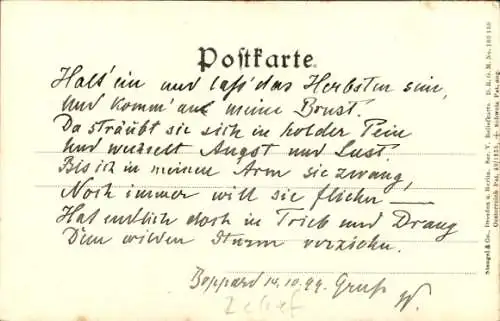 Postkarte.
Halt' ein und laß' das Herbsten sein,
und komm' an meine Brust.
Da sträubt sie sich in holder Pein
und wechselt Angst und Lust.
Bis ich in meinen Arm sie zwang,
Noch immer will sie fliehen —
Hat endlich doch in Trieb und Drang
Dem wilden Sturm verziehen.
Boppard 14.10.99. Gruß
Relief
Stengel & Co., Dresden u. Berlin. Ser. V. Reliefkarte. D. R. G. M. No.
Oesterreich Pat. + Schweiz Pat. ang.